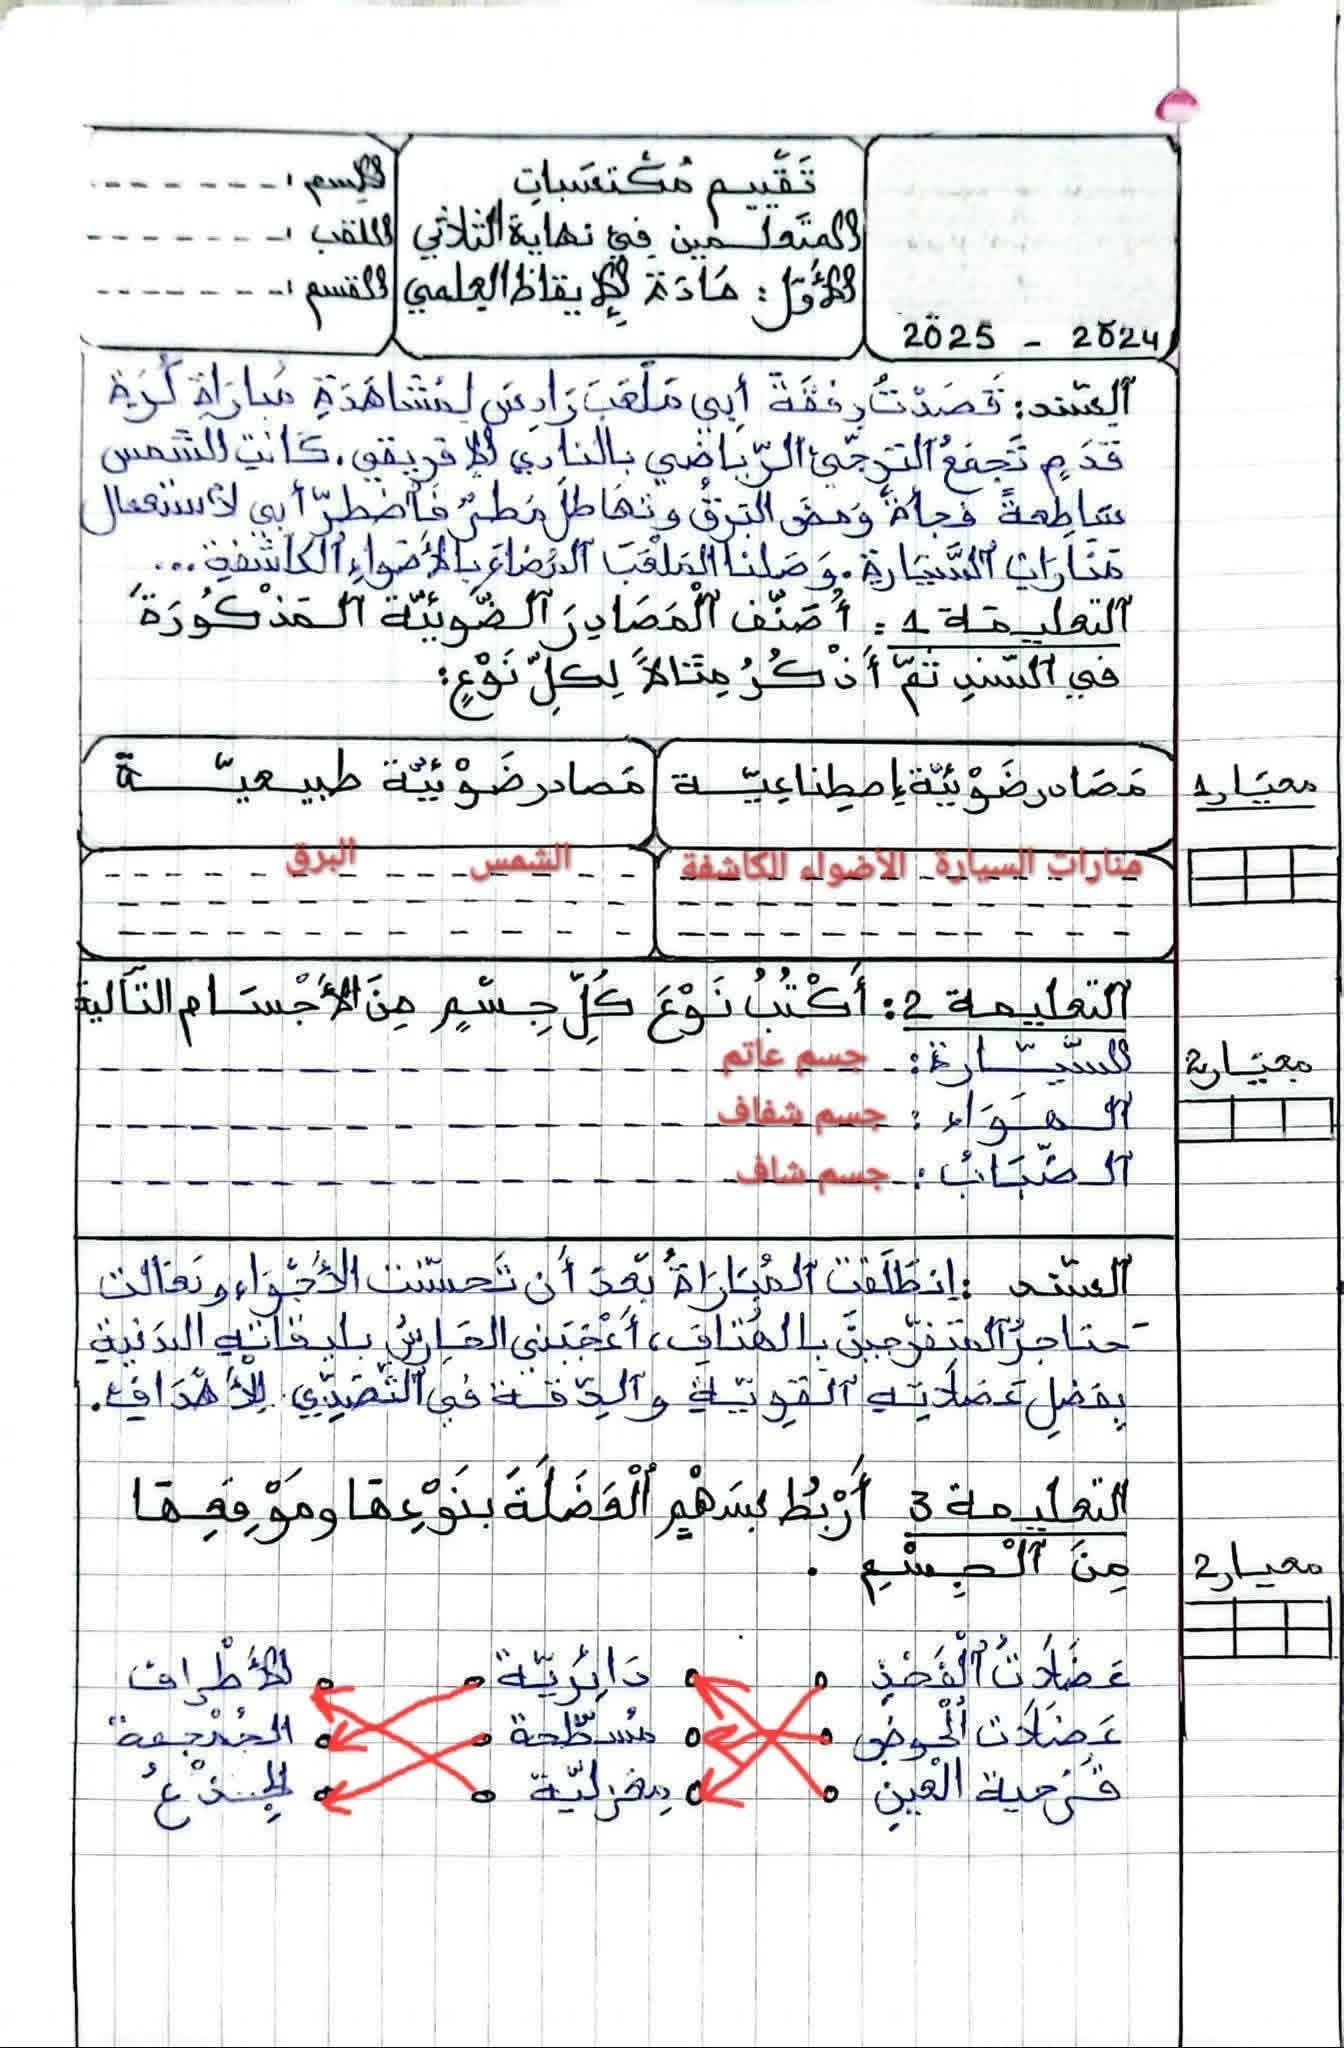 تَقْيِيم مُكْتَسَبَاتِ
المتَعلمين فِي نهاية الثلاثي
الأَوّل: مَادَة الإِيقاظ العِلمي
الإسم : -------
اللقب : -------
القسم : -------
2025 - 2024
السّند: قَصَدْتُ رِفقَةَ أَبِي مَلْعَبَ رَادِسَ لِمُشَاهَدَةِ مُبارَاةِ كُرَةِ
قَدَمٍ تَجمَعُ التَرجّيَ الرّيَاضي بالنادي الإفريقي. كانت الشّمس
سَاطِعةً فجأة وَمضَ البَرقُ وتهَاطلَ مَطرٌ فاضطرّ أبي لاستعمال
مَنَارَاتِ السَّيارةِ. وَصلنا الملعَبَ المُضاءَ بالأضواءِ الكاشفةِ...
التعليمة 1 : أُصَنِّف الْمَصَادِرَ الضَّوْئِيَّة المَذْكُورَةَ
في السّندِ ثمّ أَذْكُرُ مِثالاً لِكلِّ نَوْعٍ:
مَصَادر ضَوْئيّة إصطِناعِيّة
مَصادر ضَوْئيّة طبيعيّة
معيار1
منارات السيارة الأضواء الكاشفة
الشمس البرق
التعليمة 2: أَكْتُبُ نَوْعَ كُلِّ جِسْمٍ مِنَ الأَجْسَامِ التّالية
السّيّارة: جسم عاتم
معيار2
الهَوَاء : جسم شفاف
الضّبَابُ : جسم شاف
السّند : اِنطَلَقت المُبَارَاةُ بَعدَ أَن تَحسّنت الأَجْوَاء وتعَالت
حناجرُ المتفرّجينَ بالهُتافِ، أَعْجَبَني الحَارسُ بليَاقَتهِ البدَنيةِ
بِفضلِ عَضلاتِهِ القَويّةِ والدِّقةِ في التّصَدِّي لِلأَهْدَافِ.
التعليمة 3 أَرْبُطُ بسَهْمٍ الْعَضَلَةَ بنَوْعِها ومَوْقِعِها
مِنَ الْجِسْمِ .
معيار2
عَضَلاَتُ الْفَخِذِ دَائِريّة الأَطْرَاف
عَضَلاَت الحوْضِ مُسَطّحة الجُمْجمة
قُزحية الْعينِ مِغزليّة الجِذْعُ